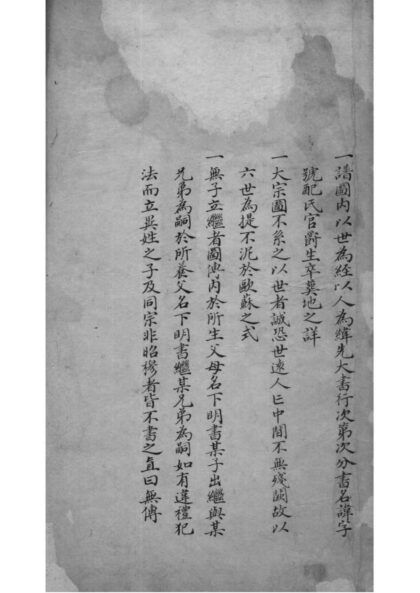 一譜圖內以世為經以人為緯先大書行次第次分書名諱字
號配氏官爵生卒葬地之詳
一大宗圖不系之以世者誠恐世遠人亡中間不無殘闕故以
六世為提不泥於歐蘇之式
一無子立繼者圖傳內於所生父母名下明書某子出繼與某
兄弟為嗣於所養父名下明書繼某兄弟為嗣如有違禮犯
法而立異姓之子及同宗非昭穆者皆不書之直曰無傳